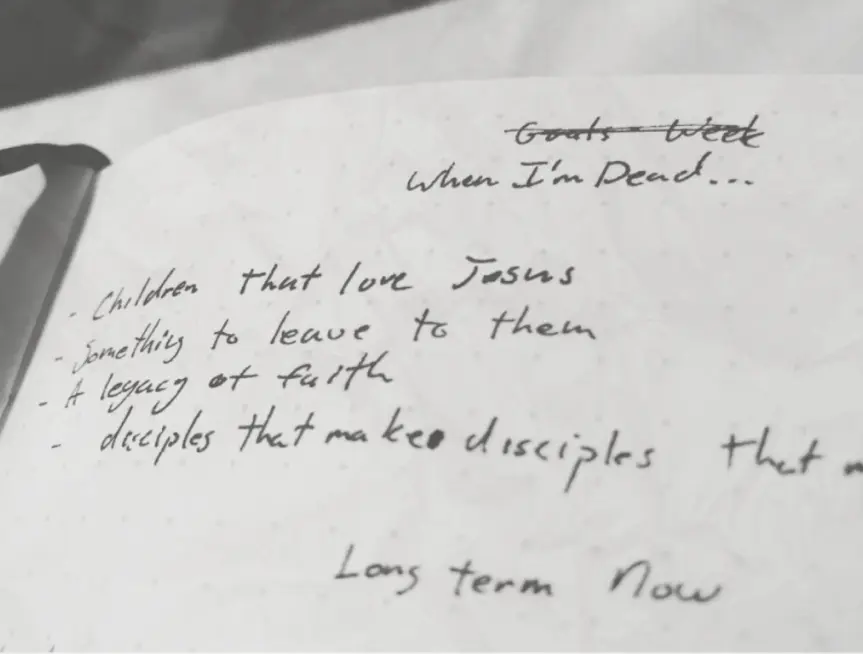 Goals - Week
When I'm Dead...
- Children that love Jesus
- Something to leave to them
- A legacy of faith
- disciples that make disciples that m
Long term Now